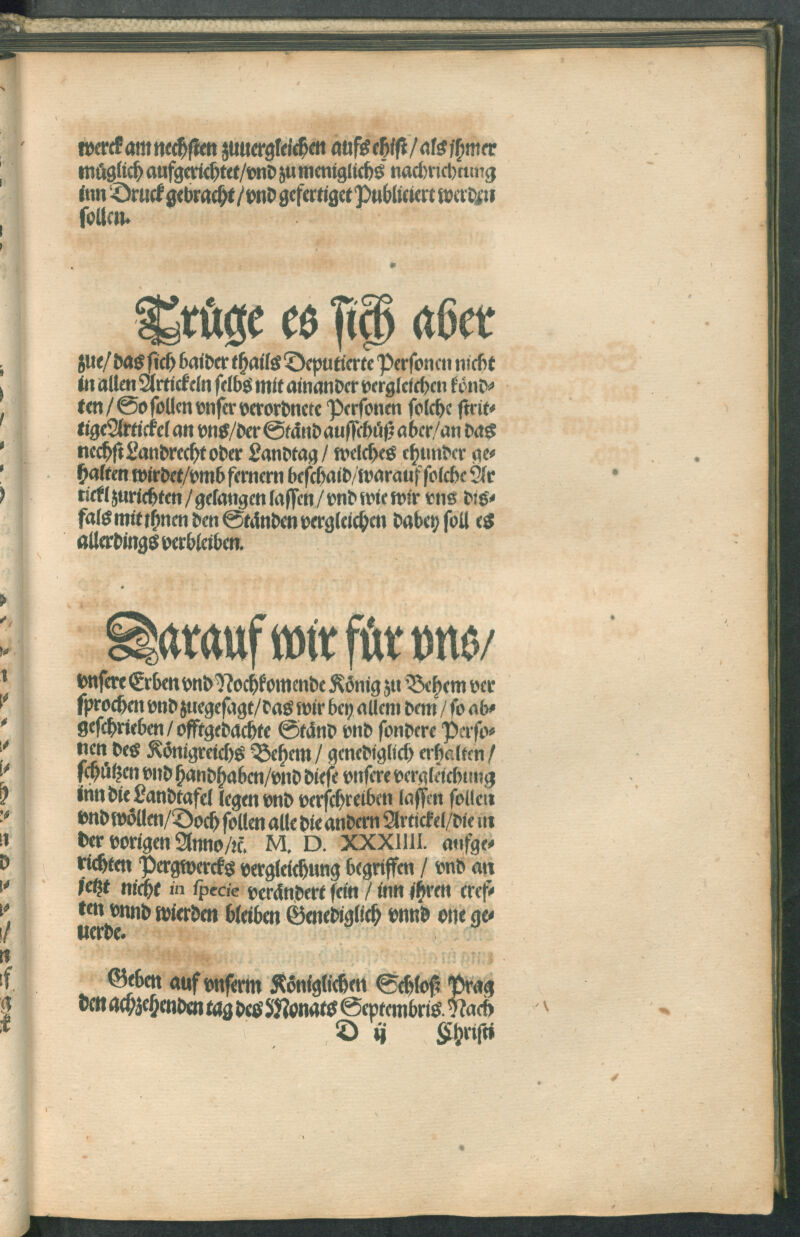 werck am nechsten zuuergleichen aufs ehist / als jhmer
müglich aufgerichtet/vnd zu meniglichs nachrichtung
inn Druck gebracht / vnd gefertiget Publiciert werden
sollen.
Trüge es sich aber
zue/ das sich baider thails Deputierte Personen nicht
in allen Artickeln selbs mit ainander vergleichen könd⸗
ten / So sollen vnser verordnete Personen solche strit⸗
tige Artickel an vns/der Ständ ausschüß aber/an das
nechst Landrecht oder Landtag / welches ehunder ge⸗
halten wirdet/vmb fernern beschaid/warauf solche Ar
tickl zurichten / gelangen lassen / vnd wie wir vns dis⸗
fals mit jhnen den Ständen vergleichen dabey soll es
allerdings verbleiben.
Darauf wir für vns/
vnsere Erben vnd Nochkomende König zu Behem ver
sprochen vnd zuegesagt/das wir bey allem dem / so ab⸗
geschrieben / offtgedachte Ständ vnd sondere Perso⸗
nen des Königreichs Behem / genediglich erhalten /
schützen vnd handhaben/vnd diese vnsere vergleichung
inn die Landtafel legen vnd verschreiben lassen sollen
vnd wöllen/Doch sollen alle die andern Artickel/die in
der vorigen Anno/ꝛc. M. D. XXXIIII. aufge⸗
richten Pergwercks vergleichung begriffen / vnd an
jetzt nicht in specie verändert sein / inn jhren cref⸗
ten vnnd wierden bleiben Genediglich vnnd one ge⸗
uerde.
Geben auf vnserm Königlichen Schloß Prag
den achzehenden tag des Monats Septembris. Nach
D ij Christi